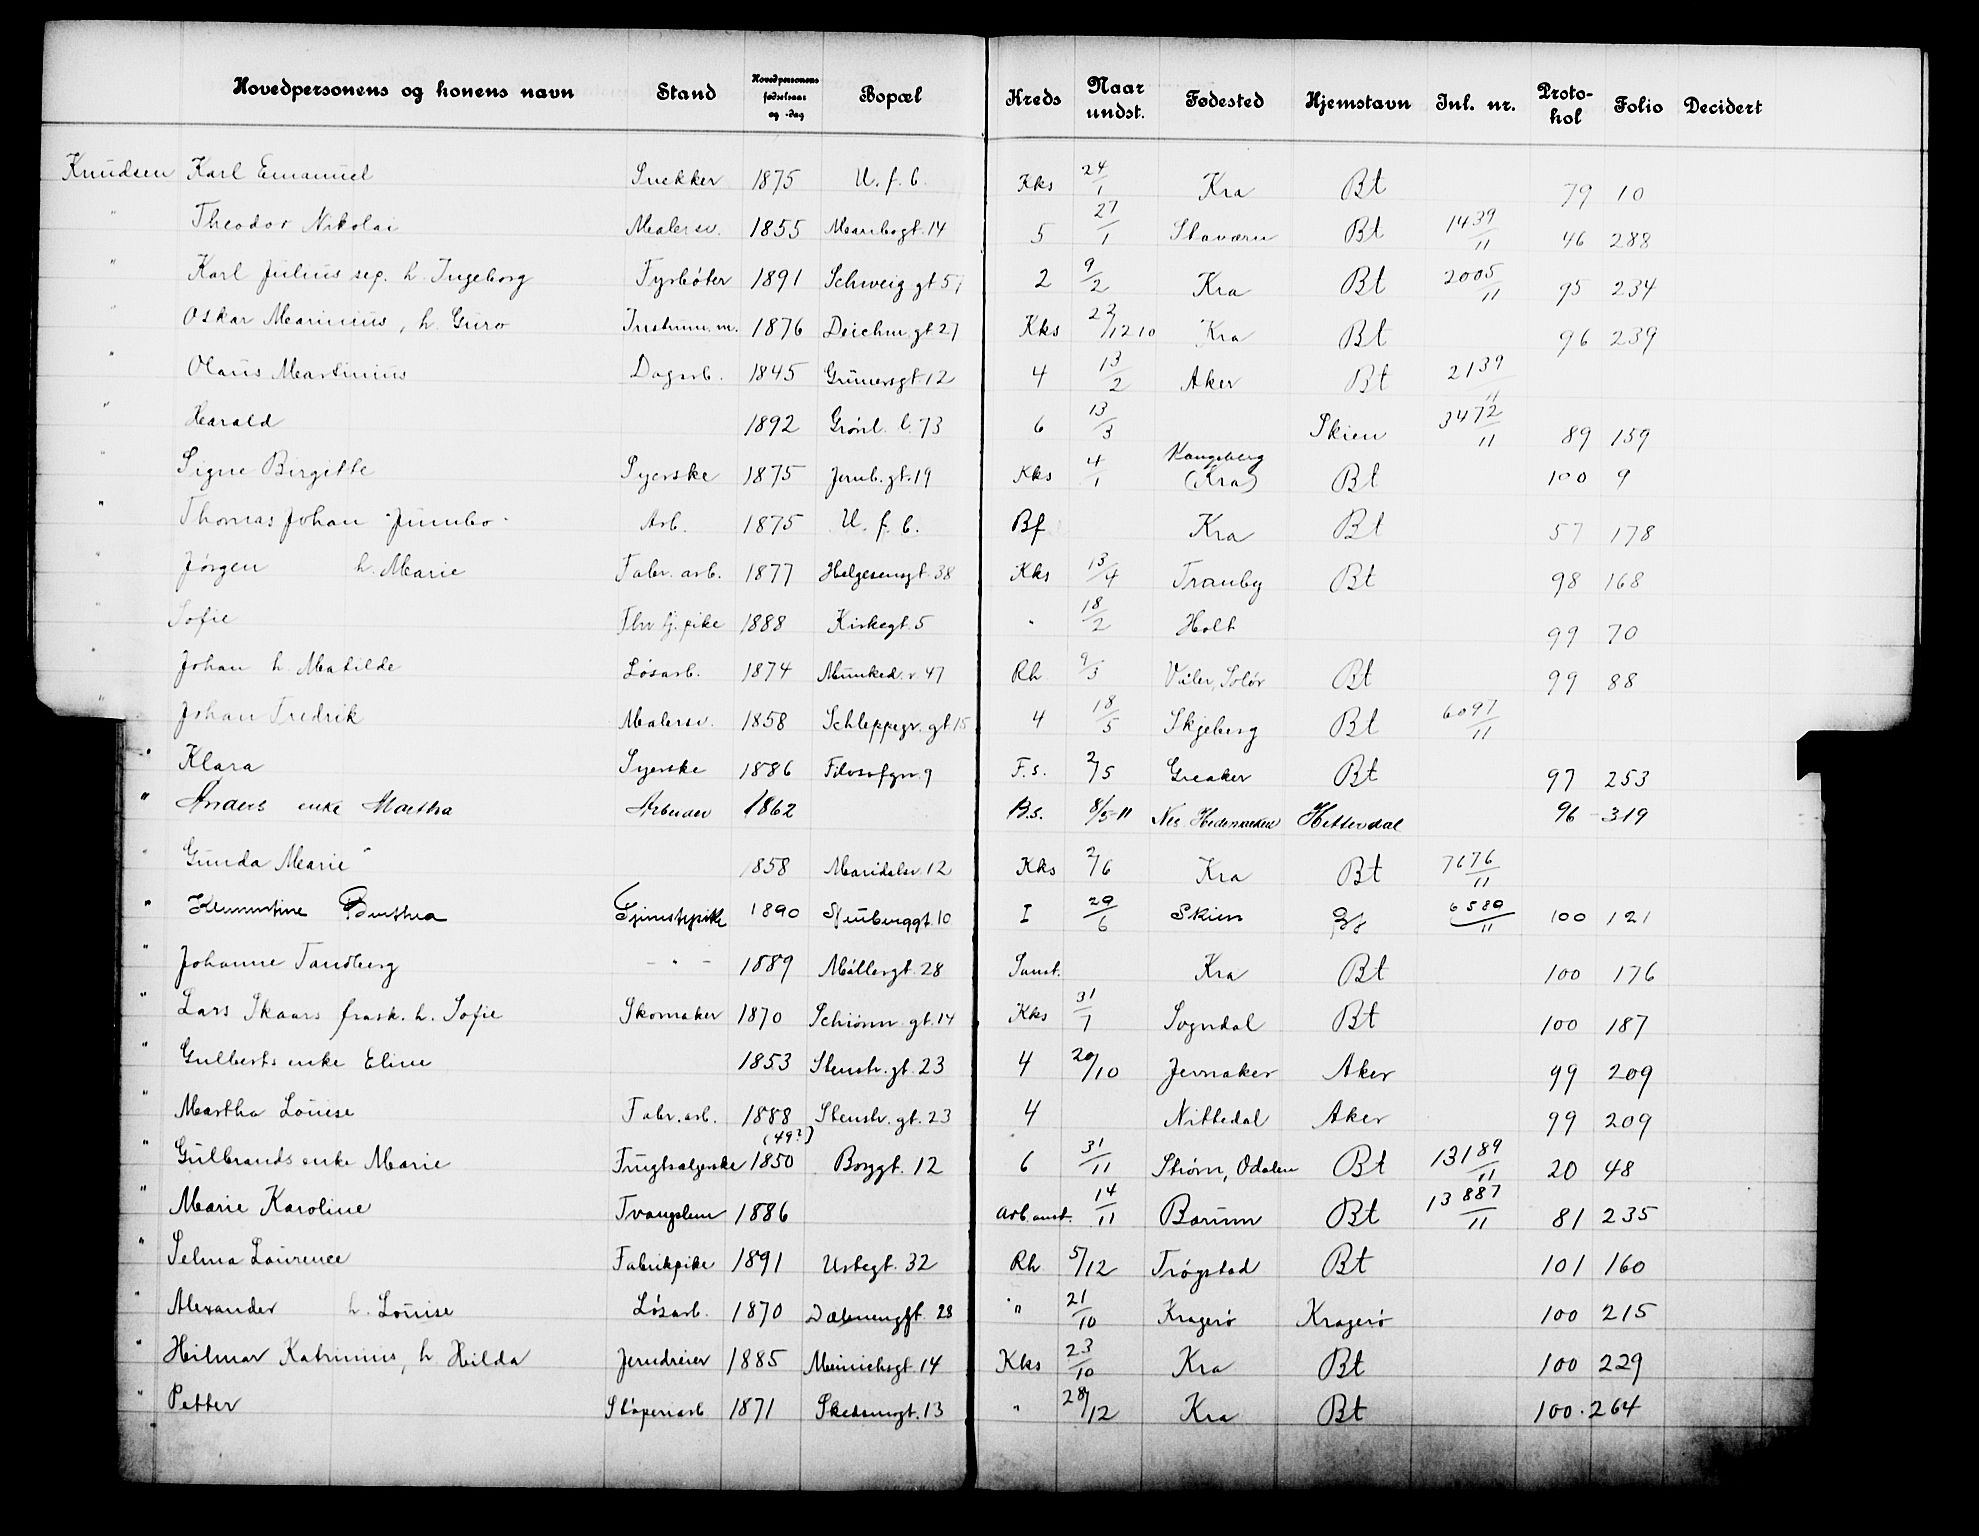 Hovedpersonens og konens navn Stand Hovedpersonens fødselsaar og -dag Bopæl Kreds Naar undst. Fødested Hjemstavn Inl. nr. Protokol Folio Decidert
Knudsen Karl Emanuel Snekker 1875 U. f. b. Kks 24/1 Kra Bt 79 10
" Theodor Nikolai Malersv. 1855 Maribogt. 14 5 27/1 Staværn Bt 1439/11 46 288
" Karl Julius sep. h. Ingeborg Fyrbøter 1891 Schweig gt 57 2 9/2 Kra Bt 2005/11 95 234
" Oskar Marinius, h. Guro Instrum. m. 1876 Deichm. gt. 27 Kks 22/12 10 Kra Bt 96 239
" Olaus Martinius Dagarb. 1845 Grünersgt 12 4 13/2 Aker Bt 2139/11
" Harald 1892 Grønl. l. 73 6 13/3 Skien 3472/11 89 159
" Signe Birgitte Syerske 1875 Jernb. gt. 19 Kks 4/1 Kongsberg (Kra) Bt 100 9
" Thomas Johan "Jumbo" Arb. 1875 U. f. b. Bf Kra Bt 57 178
" Jørgen h. Marie Fabr. arb. 1877 Helgesensgt. 38 Kks 13/4 Tranby Bt 98 168
" Sofie Fhv tj. pike 1888 Kirkegt. 5 " 18/2 Holt 99 70
Johan h. Matilde Løsarb. 1874 Munked. v 47 Rh 9/3 Våler, Solør Bt 99 88
" Johan Fredrik Malersv. 1858 Schleppegr. gt. 15 4 18/5 Skjeberg Bt 6097/11
" Klara Syerske 1886 Filosofgn. 9 F.s. 2/5 Greaker Bt 97 253
" Anders enke Martha Arbeider 1862 B.s. 8/5-11 Nes Hedemarken Hitterdal 96 - 319
" Gunda Marie " 1858 Maridalsv. 12 Kks 2/6 Kra Bt 7676/11
" Klementine Berthea Tjenestepike 1890 Stenberggt. 10 I 29/6 Skien 6580/11 100 121
" Johanne Tandberg - " - 1889 Møllergt. 28 Sunst. Kra Bt 100 176
" Lars Skaars frask. h. Sofie Skomaker 1870 Schiønn. gt. 14 Kks 31/7 Sogndal Bt 100 187
" Gulberts enke Eline 1853 Stenstr. gt. 23 4 20/10 Jevnaker Aker 99 209
" Martha Louise Fabr. arb. 1888 Stenstr. gt. 23 4 Nittedal Aker 99 209
" Gulbrands enke Marie Frugtsælgerske (49?) 1850 Borggt. 12 6 31/11 Strøm, Odalen Bt 13189/11 20 48
" Marie Karoline Tvangslem 1886 Arb. anst. 14/11 Bærum Bt 13887/11 81 235
" Selma Laurence Fabrikpike 1891 Urtegt. 32 Rh 5/12 Trøgstad Bt 101 160
" Alexander h. Louise Løsarb. 1870 Dælenenggt. 28 " 21/10 Kragerø Kragerø 100 215
" Hilmar Katrinius, h. Hilda Jerndreier 1885 Meinichsgt. 14 Kks 23/10 Kra Bt 100 229
" Petter Støperiarb 1871 Skedsmogt. 13 " 28/12 Kra Bt 100 . 264